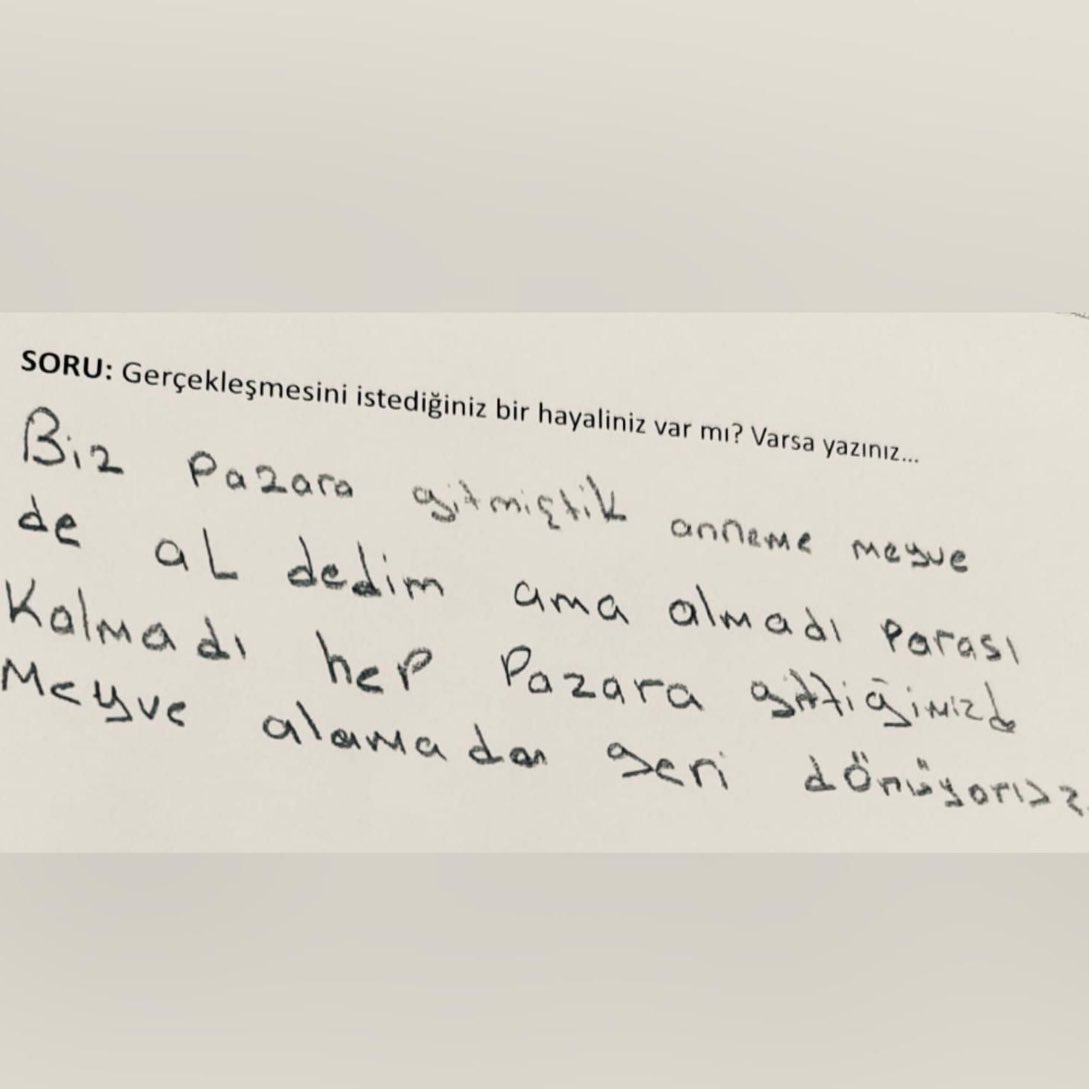 SORU: Gerçekleşmesini istediğiniz bir hayaliniz var mı? Varsa yazınız...
Biz Pazara gitmiştik anneme meyve
de al dedim ama almadı parası
Kalmadı hep Pazara gittiğimizde
Meyve alamadan geri dönüyoruz